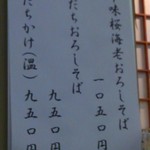 味桜海老おろしそば
一〇五〇円
だちおろしそば
九五〇円
だちかけ(温)
九五〇円